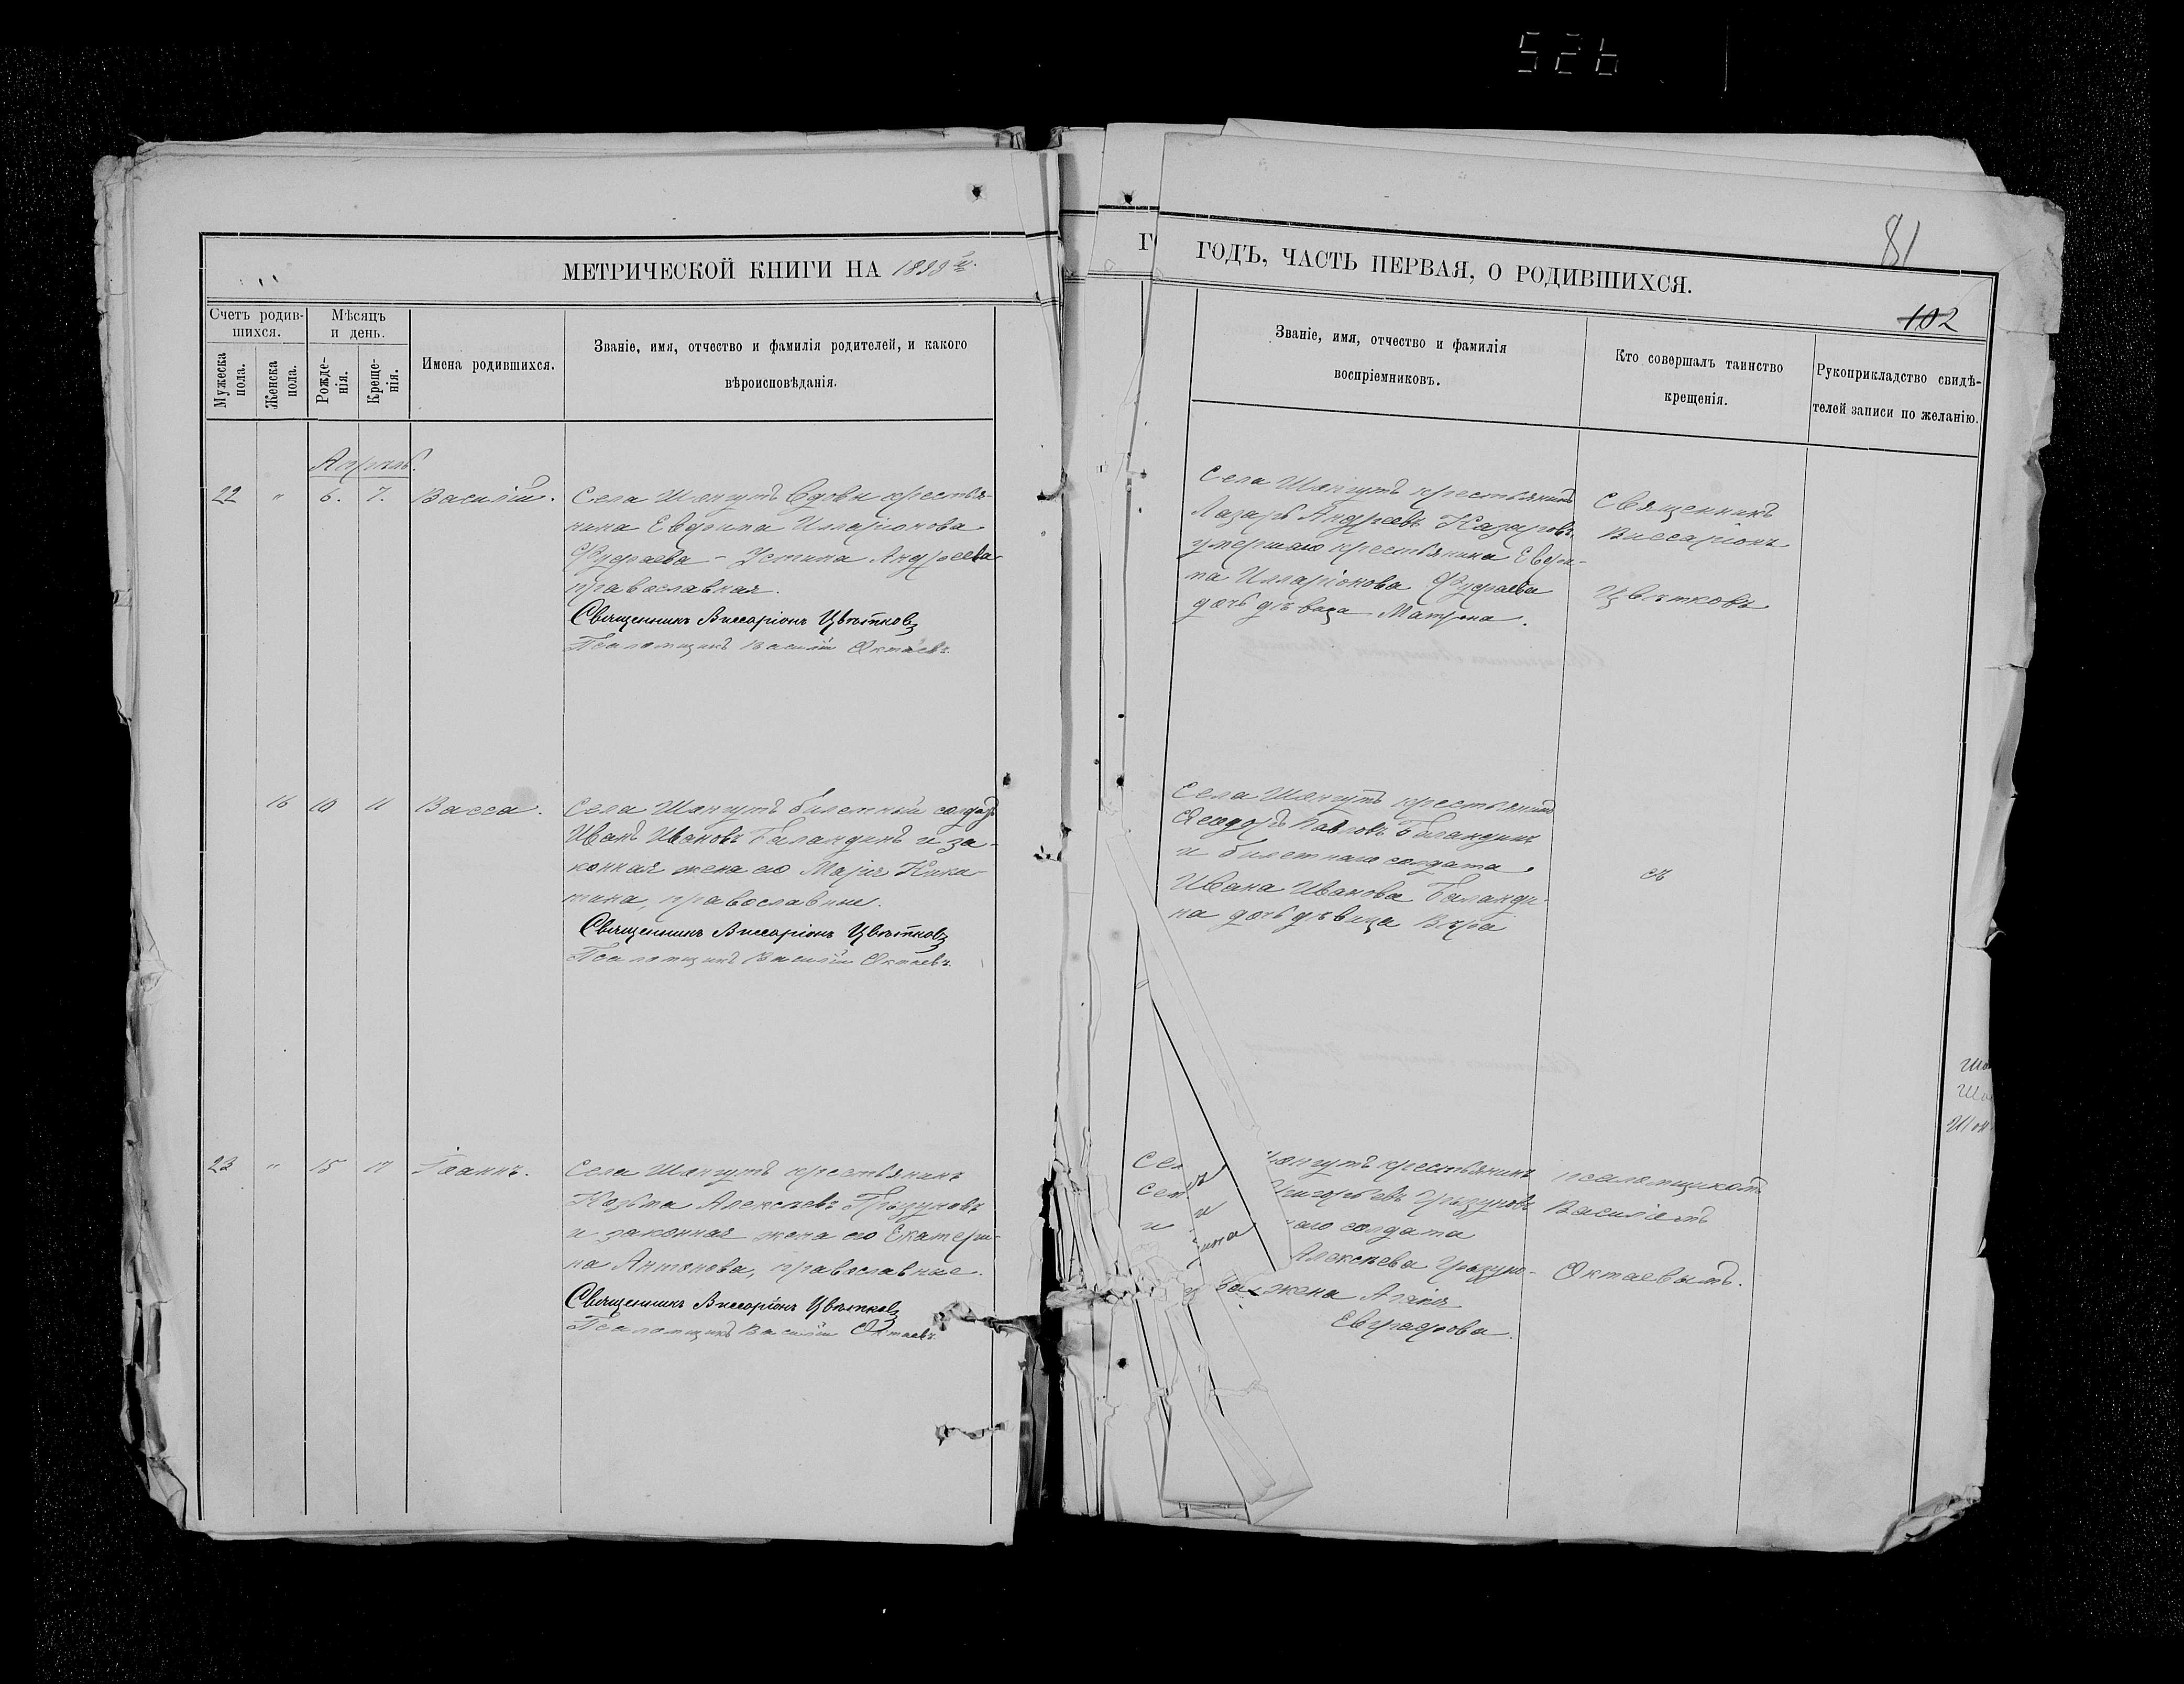 526
81
102
МЕТРИЧЕСКОЙ КНИГИ НА 1899 й.
ГОДЪ, ЧАСТЬ ПЕРВАЯ, О РОДИВШИХСЯ.
Счетъ родив-
шихся.
Мужеска
пола.
Женска
пола.
Мѣсяцъ
и день.
Рожде-
нія.
Креще-
нія.
Имена родившихся.
Званіе, имя, отчество и фамилія родителей, и какого
вѣроисповѣданія.
Званіе, имя, отчество и фамилія
воспріемниковъ.
Кто совершалъ таинство
крещенія.
Рукоприкладство свидѣ-
телей записи по желанію.
Апрѣль.
22 " 6. 7. Василій.
Села Шянгутъ вдовы крестья-
нина Илларіонова
Устина Андреева
православная.
Священникъ Виссаріонъ Цвѣтковъ
Псаломщикъ Василій Октаевъ.
Села Шянгутъ крестьянинъ
Лазарь Андреевъ Назаровъ,
умершаго крестьянина
Илларіонова
дочь дѣвица Матрона.
Священникъ
Виссаріонъ
Цвѣтковъ
16 10 11 Васса.
Села Шянгутъ билетный солдатъ
Иванъ Ивановъ Баландинъ и за-
конная жена его Марія Ники-
тина, православные.
Священникъ Виссаріонъ Цвѣтковъ
Псаломщикъ Василій Октаевъ.
Села Шянгутъ крестьянинъ
Ѳеодоръ Павловъ Баландинъ
и билетнаго солдата
Ивана Иванова Баланди-
на дочь дѣвица Вѣра
23 " 15 17 Іоаннъ.
Села Шянгутъ крестьянинъ
Козьма Алексѣевъ Грызуновъ
и законная жена его Екатери-
на Антонова, православные.
Священникъ Виссаріонъ Цвѣтковъ
Псаломщикъ Василій Октаевъ.
янгутъ крестьянинъ
ригорьевъ Грызуновъ
и наго солдата
Алексѣева Грызуно-
ва жена Агаѳія
Евграфова.
псаломщикомъ
Василіемъ
Октаевымъ.